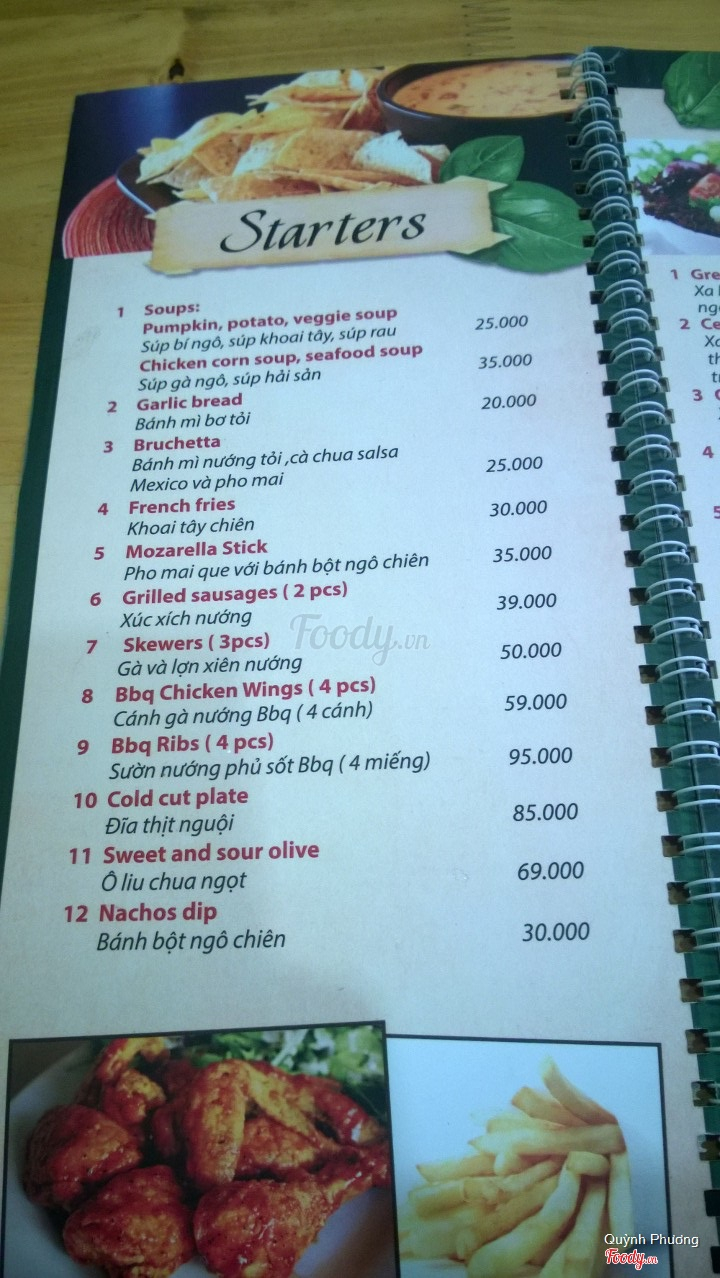 Starters
1 Soups:
Pumpkin, potato, veggie soup 25.000
Súp bí ngô, súp khoai tây, súp rau
Chicken corn soup, seafood soup 35.000
Súp gà ngô, súp hải sản
2 Garlic bread 20.000
Bánh mì bơ tỏi
3 Bruchetta
Bánh mì nướng tỏi ,cà chua salsa
Mexico và pho mai 25.000
4 French fries 30.000
Khoai tây chiên
5 Mozarella Stick 35.000
Pho mai que với bánh bột ngô chiên
6 Grilled sausages ( 2 pcs) 39.000
Xúc xích nướng
7 Skewers ( 3pcs) 50.000
Gà và lợn xiên nướng
8 Bbq Chicken Wings ( 4 pcs) 59.000
Cánh gà nướng Bbq ( 4 cánh)
9 Bbq Ribs ( 4 pcs) 95.000
Sườn nướng phủ sốt Bbq ( 4 miếng)
10 Cold cut plate 85.000
Đĩa thịt nguội
11 Sweet and sour olive 69.000
Ô liu chua ngọt
12 Nachos dip 30.000
Bánh bột ngô chiên
Foody.vn
1 Gre
2 Ce
3
4
5
Quỳnh Phương
Foody.vn